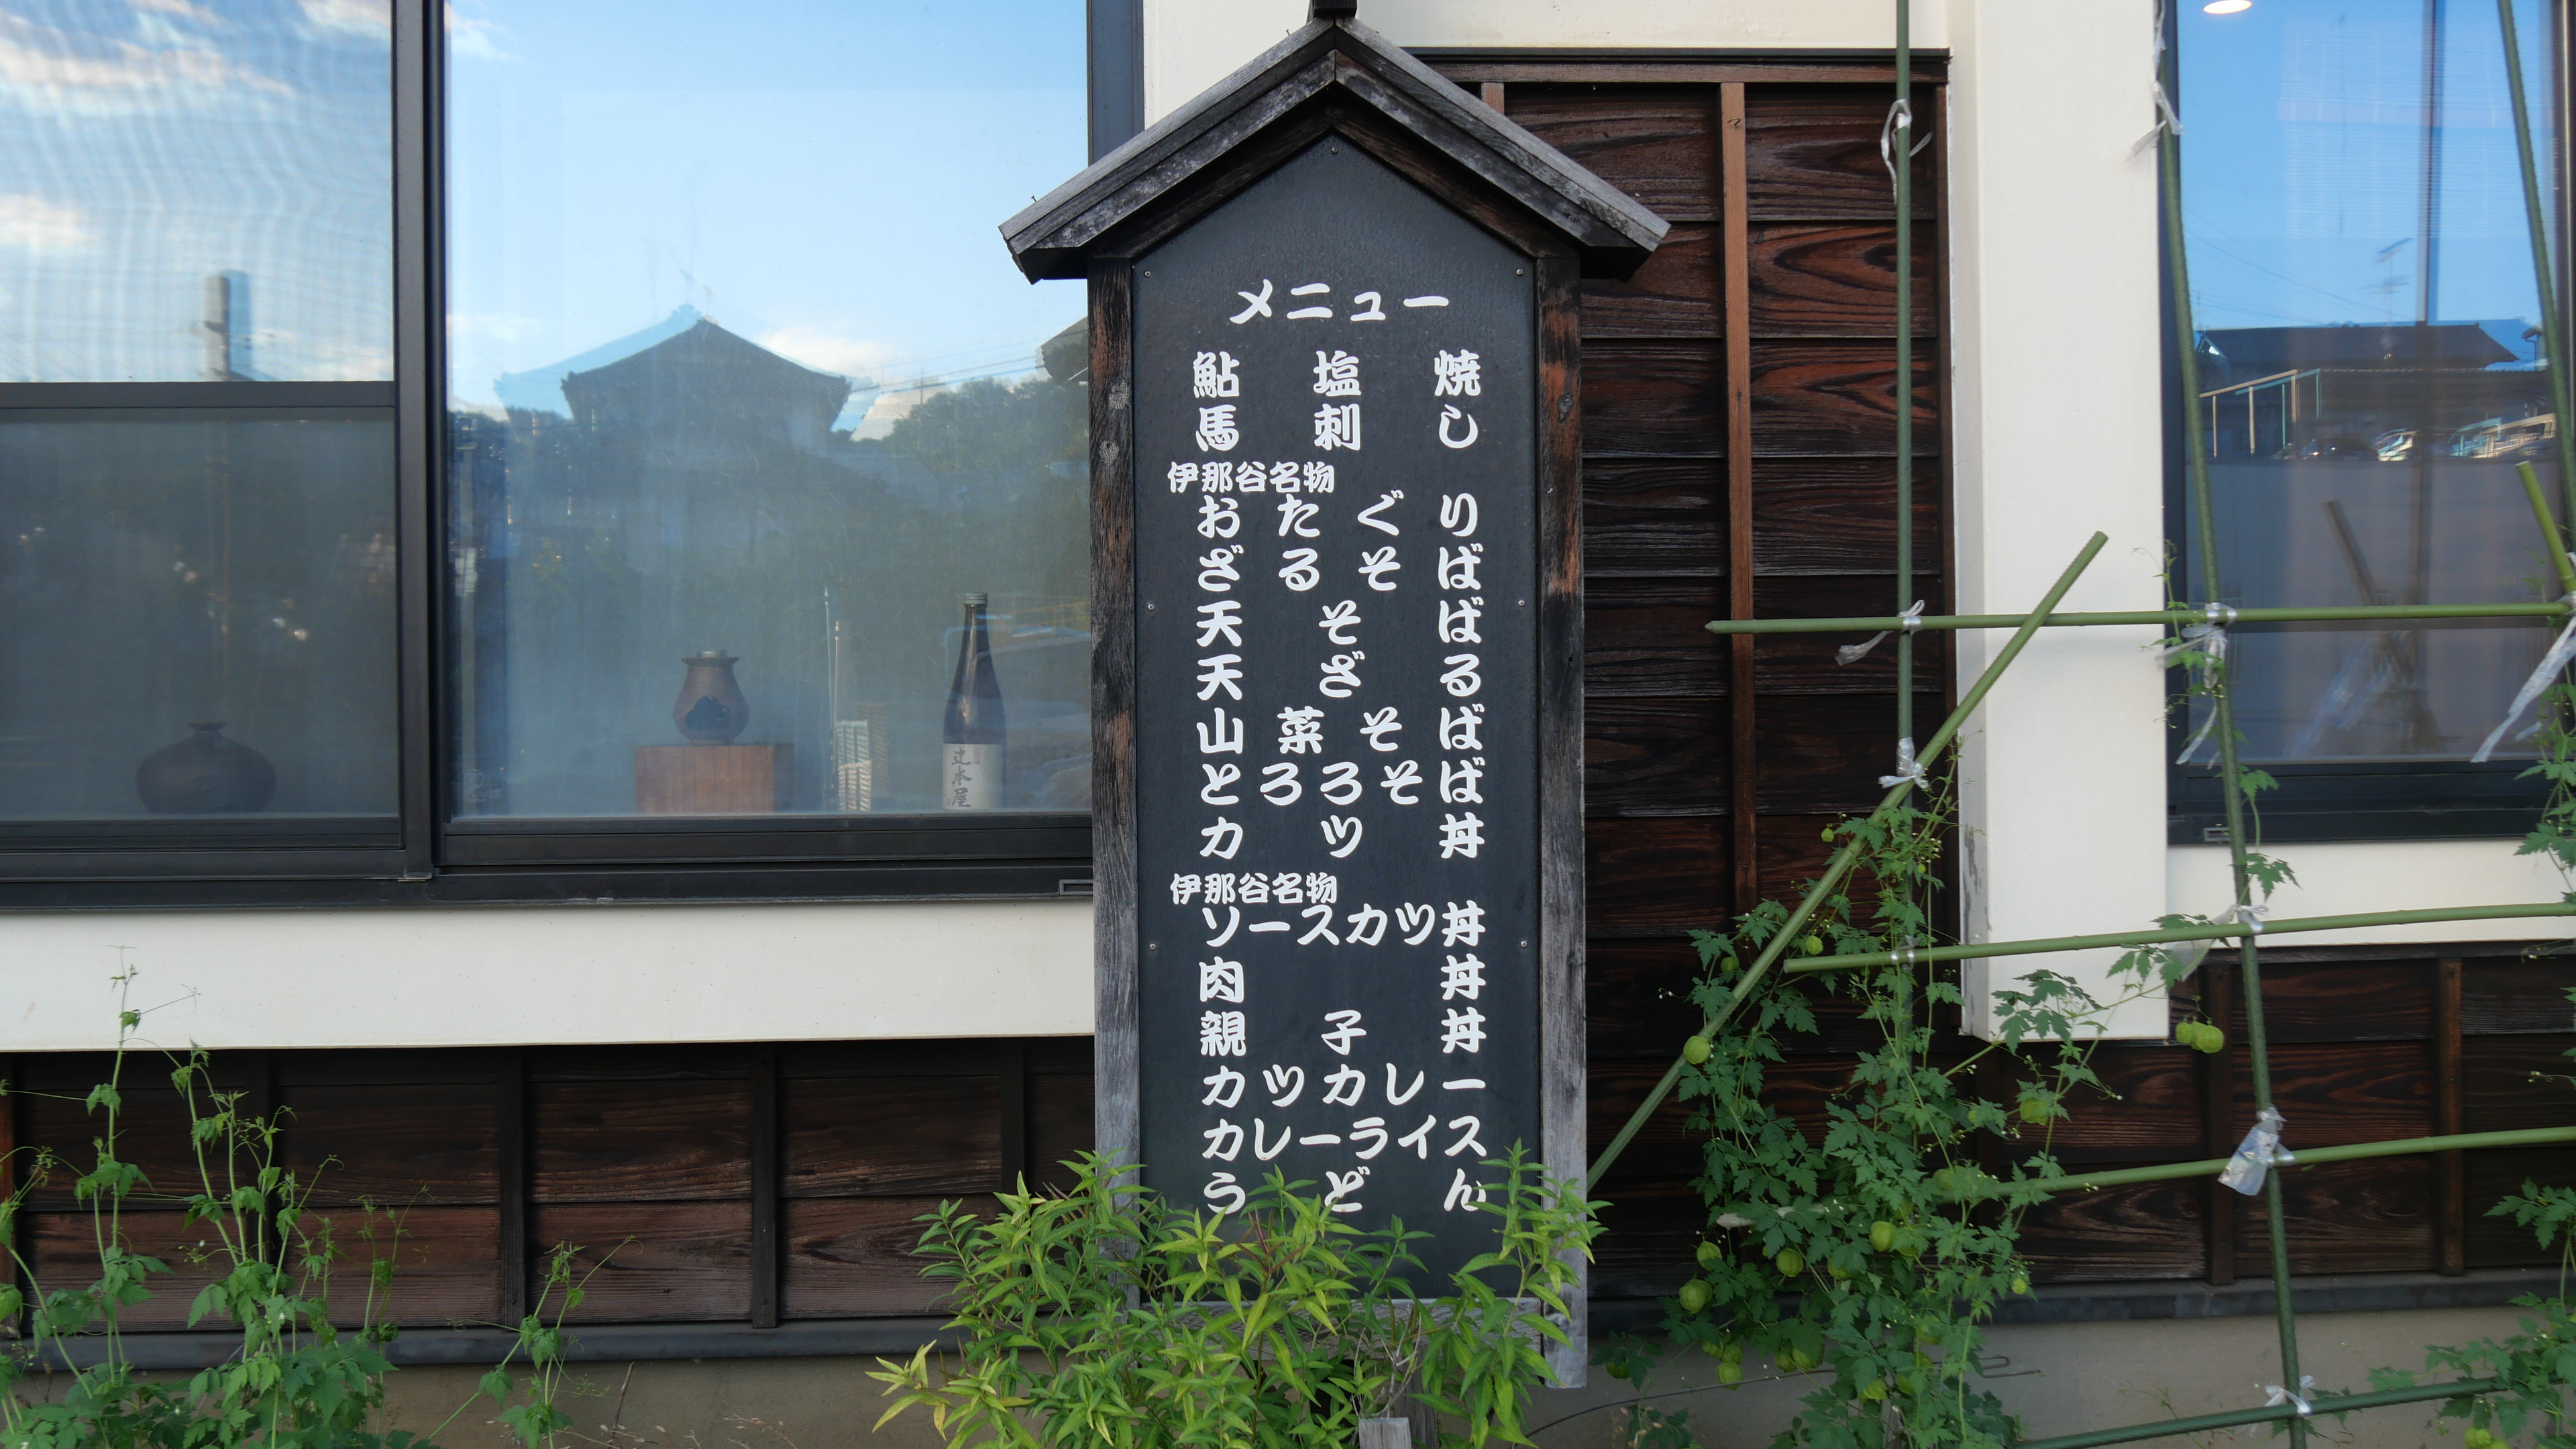 メニュー
鮎塩焼
馬刺し
伊那谷名物
おたぐり
ざるそば
天そば
天ざる
山菜そば
とろろそば
カツ丼
伊那谷名物
ソースカツ丼
肉丼
親子丼
カツカレー
カレーライス
うどん
辻本屋